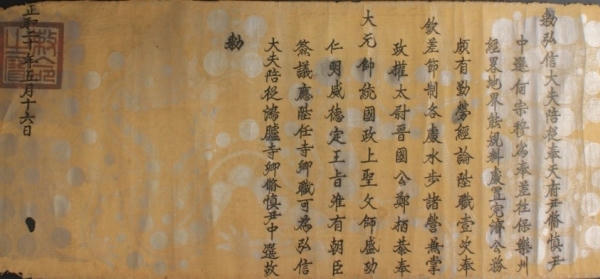 勑弘信大夫陪從奉天府尹脩慎尹
中選宗穆為奉差往保樂州
經界地界能規料處置完濟公務
頗有勤勞經論陞職壹次奉
欽差節制各處水步諸營兼掌
政權太尉晉國公鄭柏恭奉
大元帥統國政上聖父師盛功
仁明威德定王旨准有朝臣
僉議應陞任寺卿職可為弘信
大夫陪從鴻臚寺卿脩慎尹中選故
勑
正和年五月十六日
敕命之寶